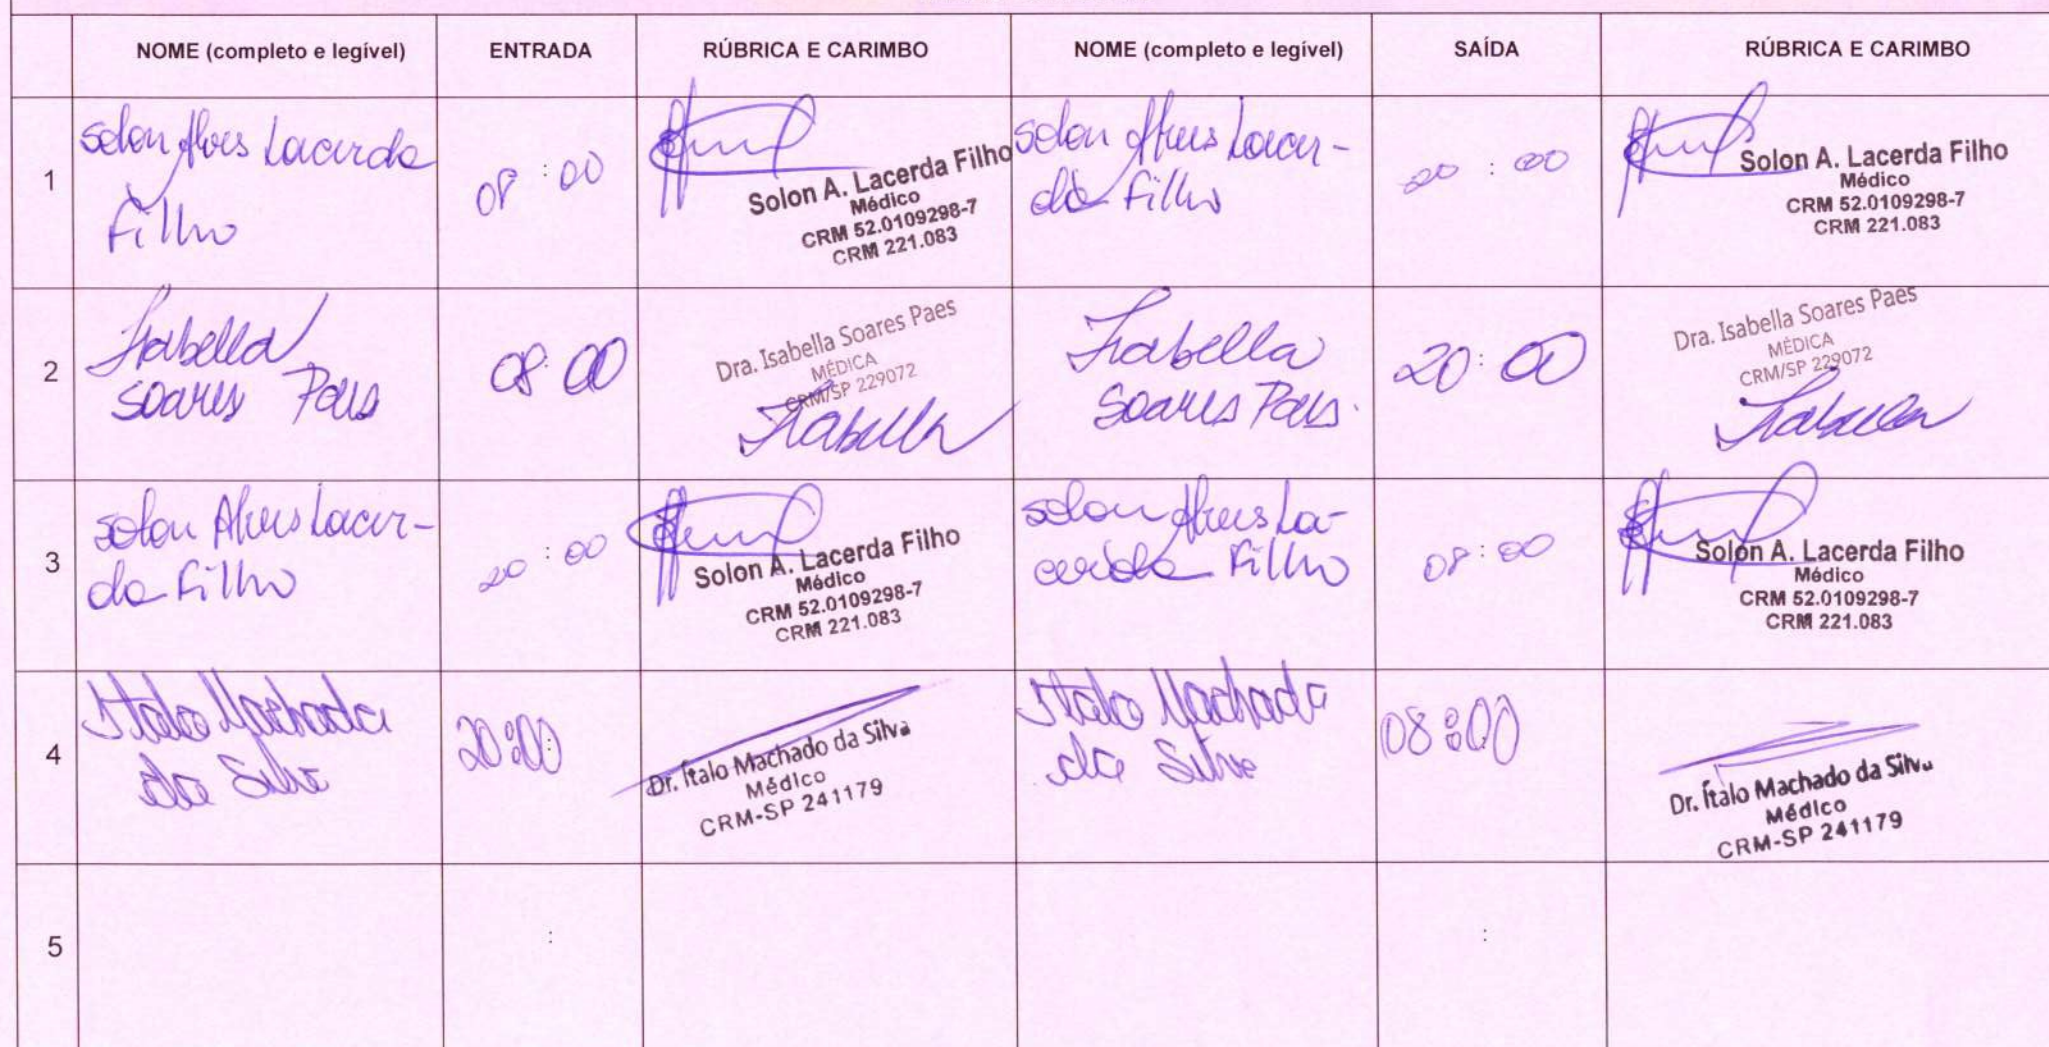 NOME (completo e legível) ENTRADA RÚBRICA E CARIMBO NOME (completo e legível) SAÍDA RÚBRICA E CARIMBO
1
Solon Alves Lacerda
Filho
08:00
Solon A. Lacerda Filho
Médico
CRM 52.0109298-7
CRM 221.083
Solon Alves Lacer-
da Filho
20:00
Solon A. Lacerda Filho
Médico
CRM 52.0109298-7
CRM 221.083
2
Isabella
Soares Paes
08:00
Dra. Isabella Soares Paes
MÉDICA
CRM/SP 229072
Isabella
Isabella
Soares Paes.
20:00
Dra. Isabella Soares Paes
MÉDICA
CRM/SP 229072
Isabella
3
Solon Alves Lacer-
da Filho
20:00
Solon A. Lacerda Filho
Médico
CRM 52.0109298-7
CRM 221.083
Solon Alves La-
cerda Filho
08:00
Solon A. Lacerda Filho
Médico
CRM 52.0109298-7
CRM 221.083
4
Italo Machado
da Silva
20:00
Dr. Ítalo Machado da Silva
Médico
CRM-SP 241179
Italo Machado
da Silva
08:00
Dr. Ítalo Machado da Silva
Médico
CRM-SP 241179
5
:
: